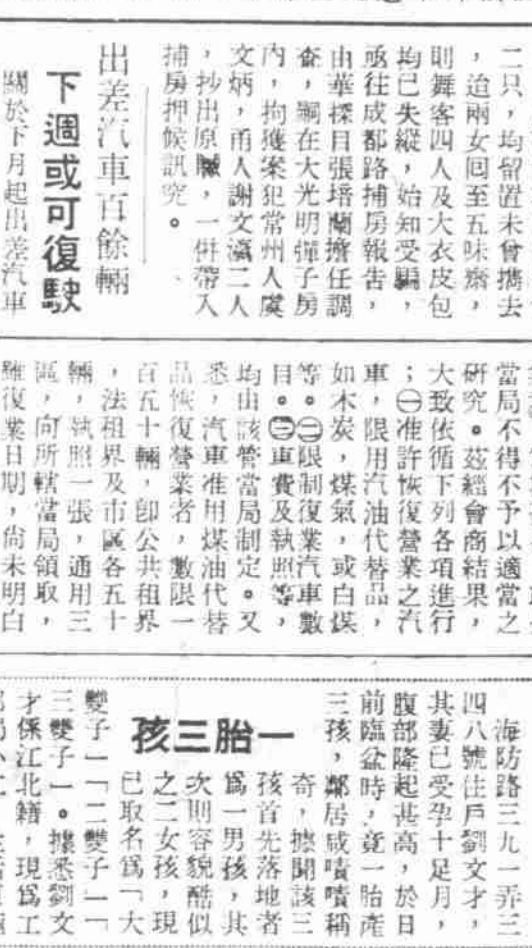 二只，均留置未曾携去
，迨兩女回至五味齋，
則舞客四人及大衣皮包
均已失縱，始知受騙，
亟往成都路捕房報告，
由華探目張培蘭擔任調
查，嗣在大光明彈子房
內，拘獲案犯常州人虞
文炳，甬人謝文瀛二人
，抄出原贓，一併帶入
捕房押候訊究。
出差汽車百餘輛
下週或可復駛
關於下月起出差汽車
當局不得不予以適當之
研究。茲經會商結果，
大致依循下列各項進行
；㊀准許恢復營業之汽
車，限用汽油代替品，
如木炭，煤氣，或白煤
等。㊁限制復業汽車數
目。㊂車費及執照等，
均由該管當局制定。又
悉，汽車准用煤油代替
品恢復營業者，數限一
百五十輛，卽公共租界
，法租界及市區各五十
輛，執照一張，通用三
區，向所轄當局領取，
雖復業日期，尚未明白
海防路三九一弄三
四八號住戶劉文才，
其妻已受孕十足月，
腹部隆起甚高，於日
前臨盆時，竟一胎產
三孩，鄰居咸嘖嘖稱
一胎三孩
奇，據聞該三
孩首先落地者
爲一男孩，其
次則容貌酷似
之二女孩，現
已取名爲「大
雙子」「二雙子」「
三雙子」。據悉劉文
才係江北籍，現爲工